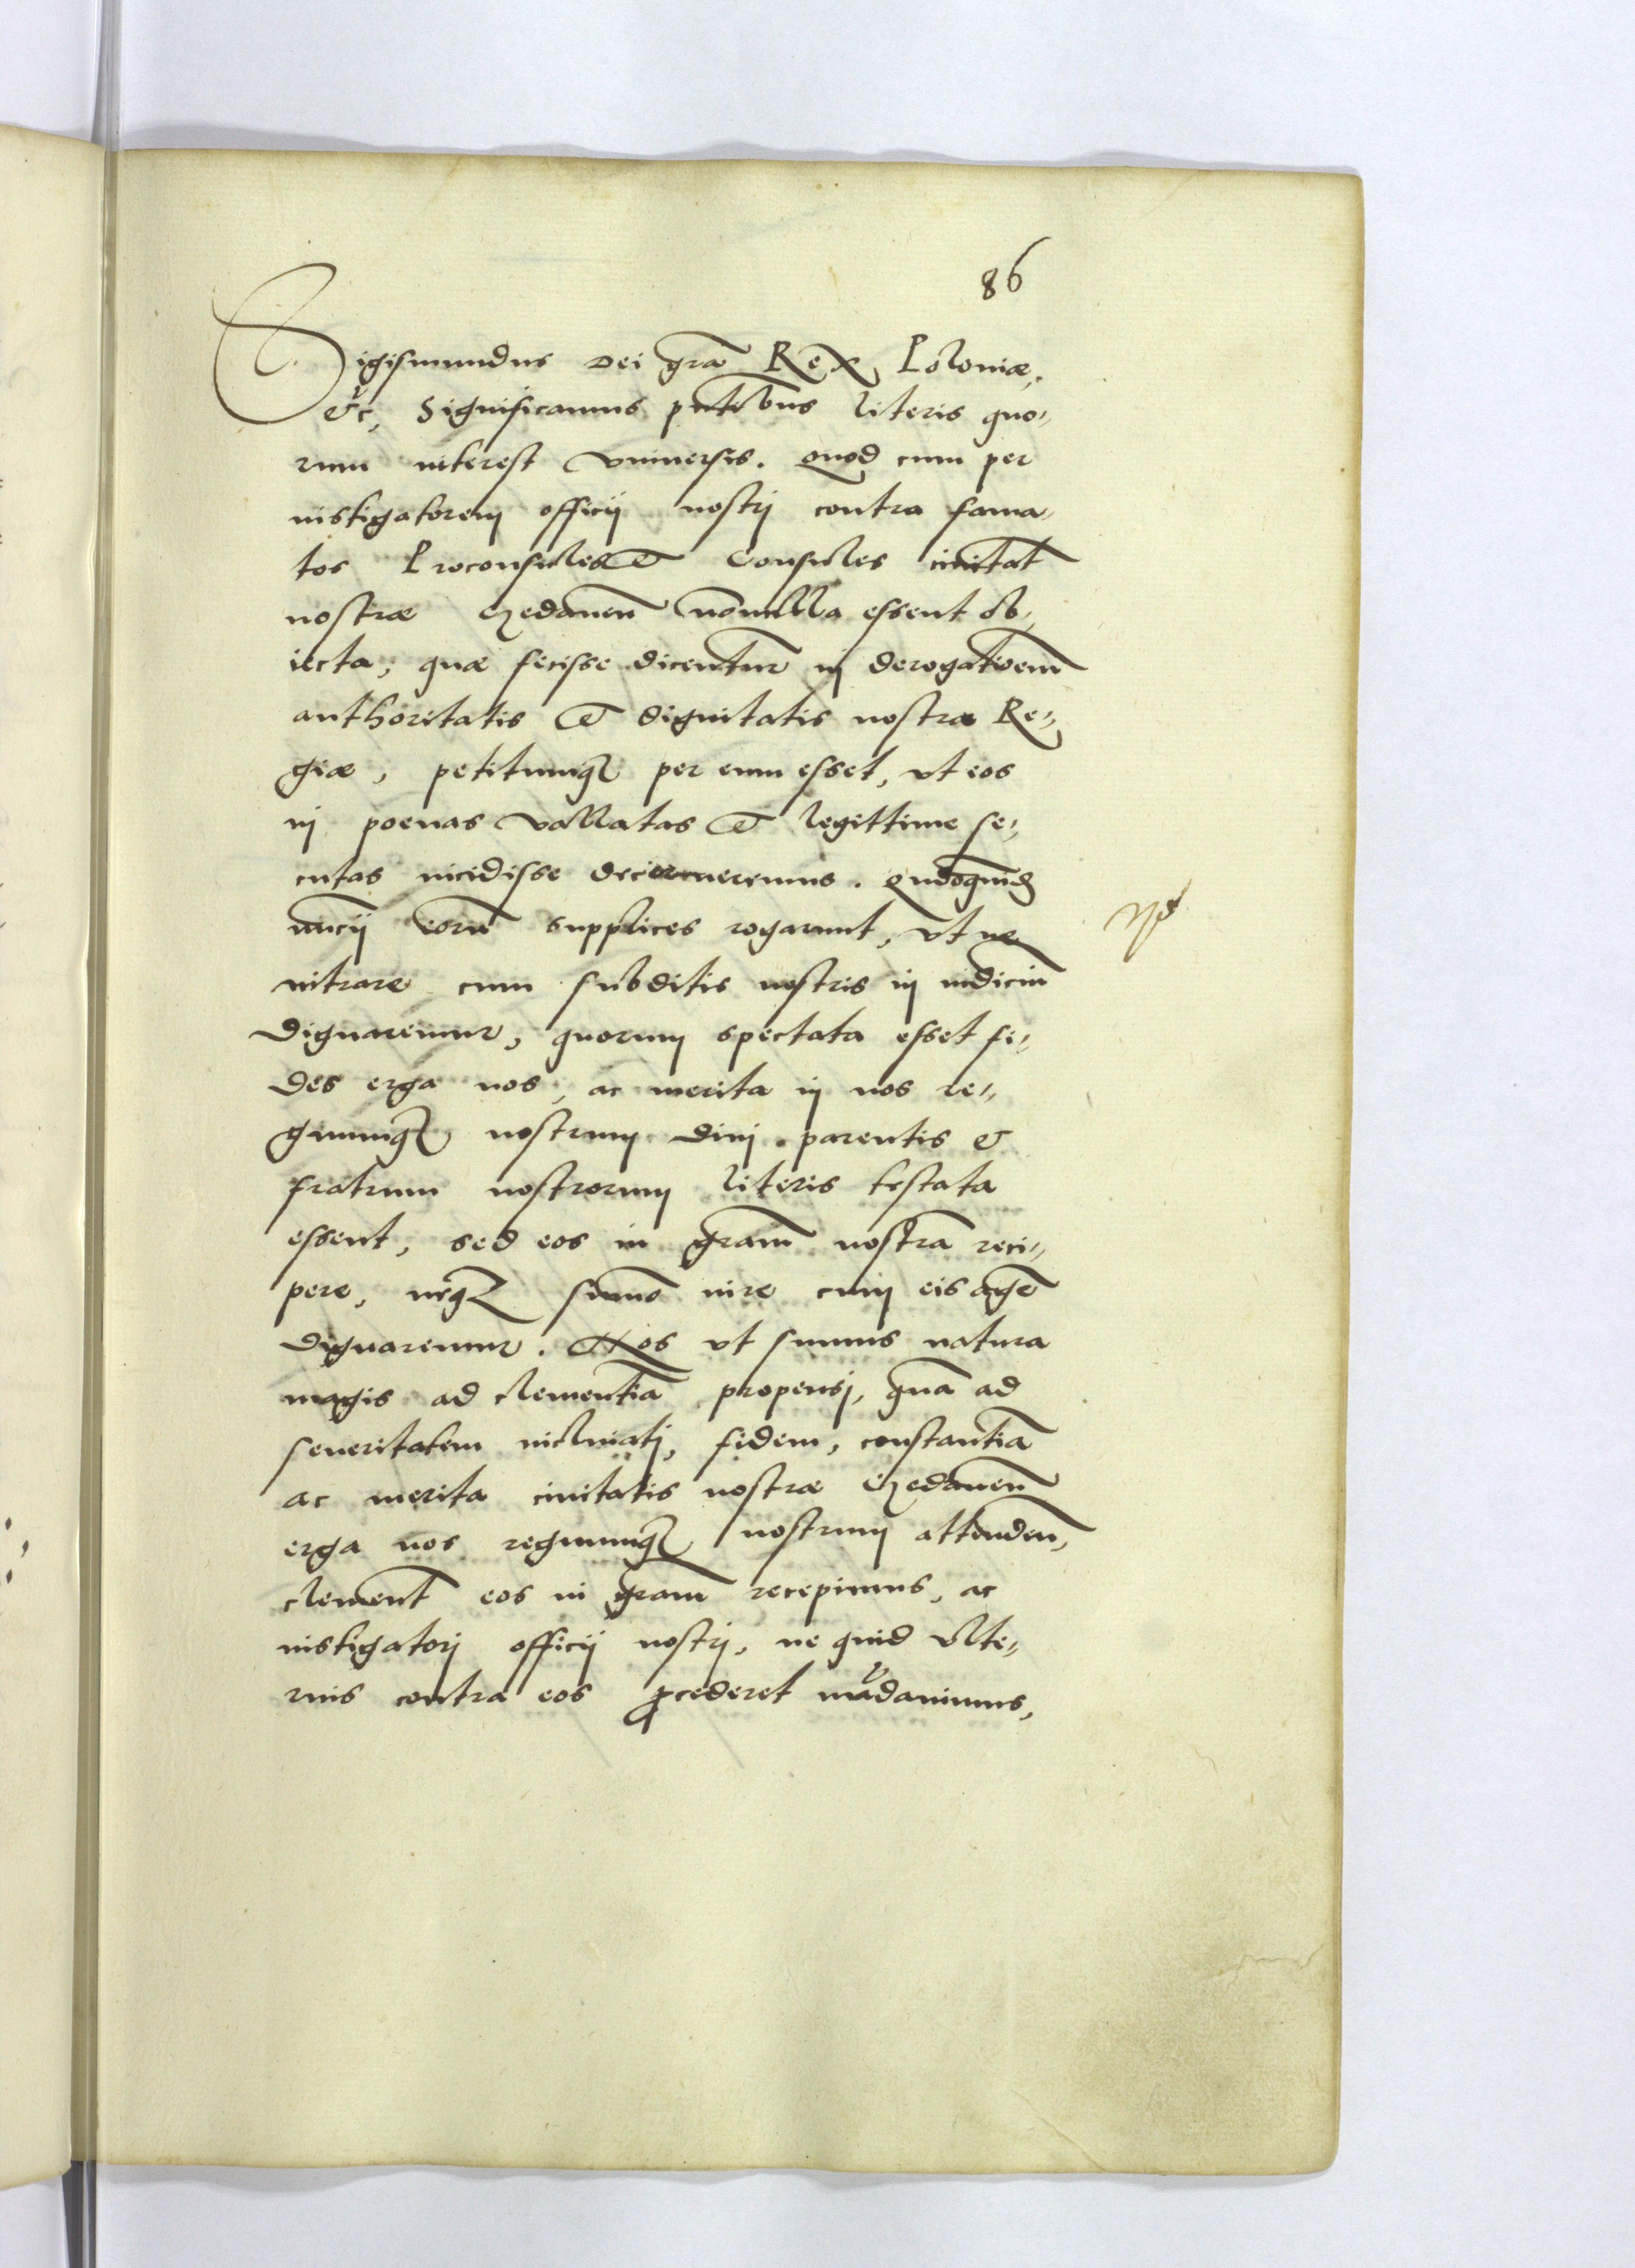 86
Sigismundus Dei gra͞ Rex Poloniæ,
etc, Significamus pn͞tibus literis quo,,
rum interest Vniuersis. Quod cum per
instigatorem officij nostrj contra fama,,
tos Proconsules et Consules ciuitat͞
nostræ Gedanen͞ no͞nulla essent ob,,
iecta, quæ fecisse dicentur in derogatioem͞
authoritatis et dignitatis nostræ Re,,
giæ, petitumq per eum esset, vt eos
in poenas vallatas et legittime se,,
cutas incidisse decerneremus.
nuncij eoru͞ supplices rogarunt, vt ne
intrare cum subditis nostris in iudiciu͞
dignaremur, quorum spectata esset fi,,
des erga nos, ac merita in nos re,,
gnumq nostrum diui parentis et
fratrum nostrorum literis testata
essent, sed eos in gram͞ nostra͞ reci,,
pere, neq su͞mo iure cum eis age͞
dignaremur. Nos vt sumus natura
magis ad clementia͞ propensj, qua͞ ad
seueritatem inclinatj, fidem, constantia͞
ac merita ciuitatis nostræ Gedanen͞
erga nos regnumq nostrum attenden,
clement͞ eos in gram͞ recepimus, ac
instigatorj officij nostrj, ne quid vlte,,
rius contra eos ꝓcederet ma͞dauimus,